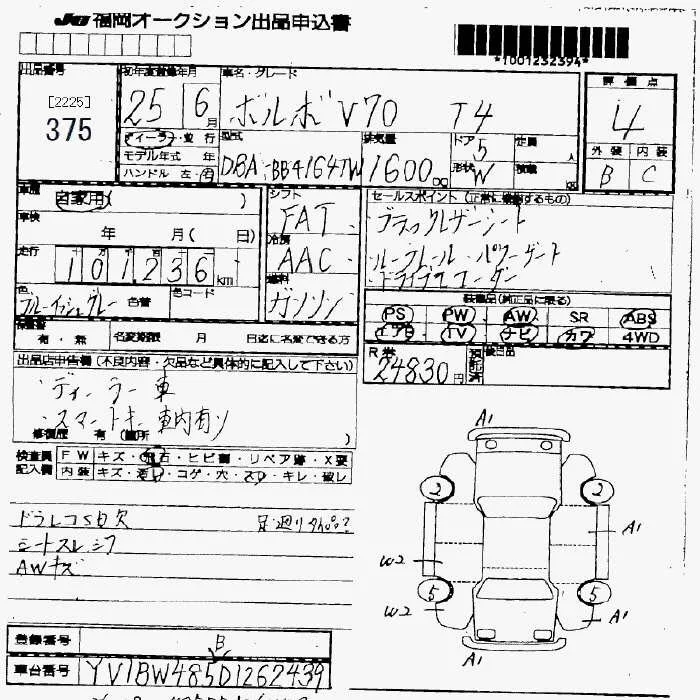 JU 福岡オークション出品申込書
*1001232394*
出品番号 初年度登録年月 車名・グレード 評価点
[2225]
375
25 6月 ボルボ V70 T4 4
ディーラー・並行 型式 排気量 ドア 定員 外装 内装
モデル年式 年 DBA-BB4164TW 1600cc 5 人 B C
ハンドル 左・右 形状 W 積載 kg
車歴 自家用( ) シフト セールスポイント(正常に稼働するもの)
車検 年 月( 日) FAT ブラックレザーシート
冷房 AAC ルーフレール・パワーゲート
走行 101236km ドライブレコーダー
色 ブルーイッシュグレー 色替 色コード 燃料 ガソリン
装備品(純正品に限る)
PS PW AW SR ABS
エアB TV ナビ カワ 4WD
有・無 名変期限 月 日迄に名変できる方
R券 24830円 預託済 後日品
出品店申告欄(不良内容・欠品など具体的に記入して下さい)
・ディーラー車
・スマートキー車内有り
修復歴 有(箇所 )
検査員 FW キズ・飛石・ヒビ割・リペア跡・X要
記入欄 内装 キズ・汚レ・コゲ・穴・スレ・キレ・破レ
ドラレコSD欠
シートスレシワ
AWキズ
A1
2 2
A1
W2
5 5
W2 A1
A1
登録番号 B
車台番号 YV1BW485D1262439